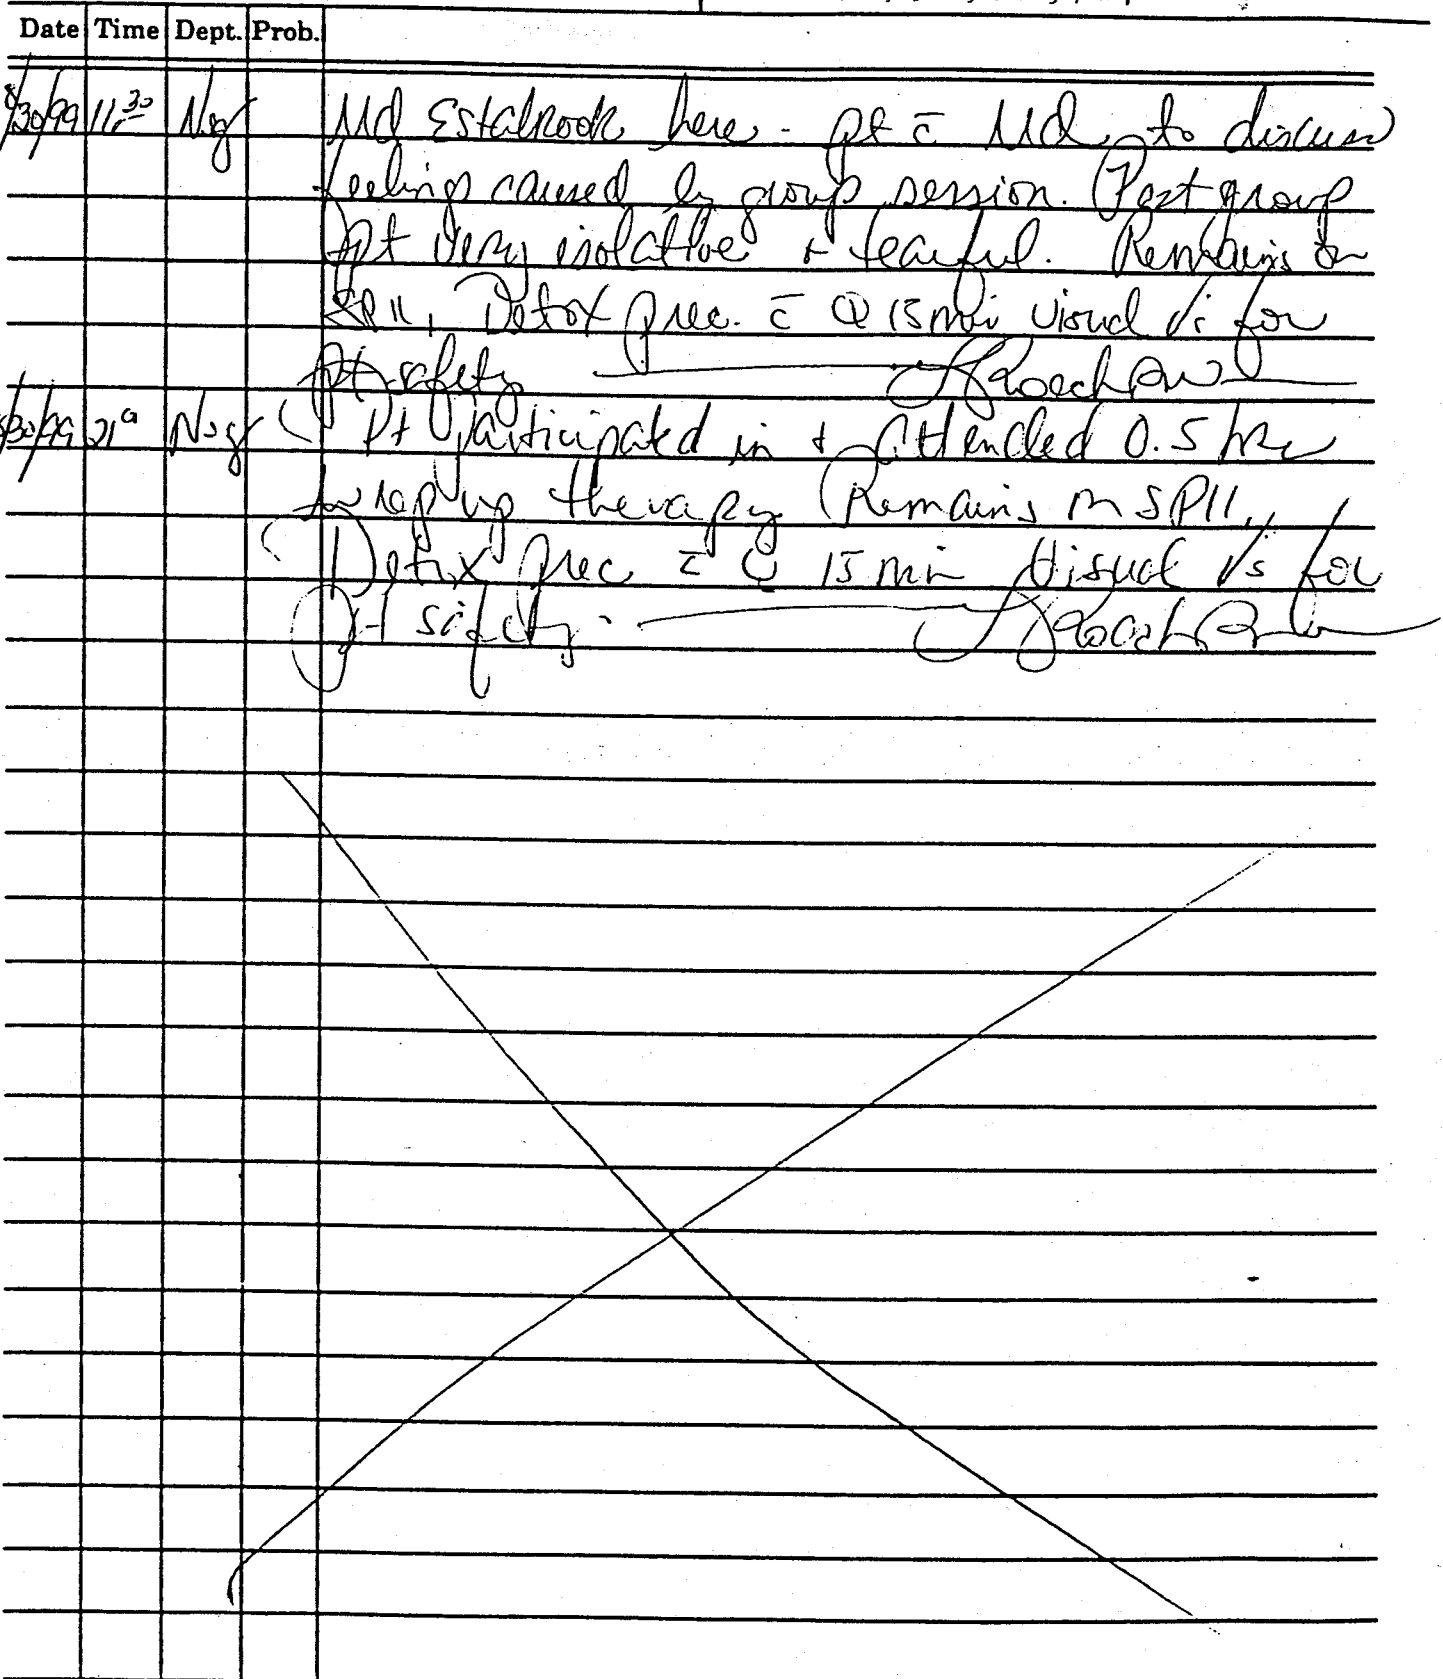 Date Time Dept. Prob.
8/30/99 11:30 Nsg Md Estabrook here - pt c̄ Md to discuss
feelings caused by group session. Post group
pt very isolative + tearful. Remains on
SP11, Detox prec. c̄ Q 15 min visual √s for
pt safety
8/30/99 21⁰ Nsg Pt participated in + attended 0.5 hr
wrap up therapy Remains on SP11,
Detox prec c̄ Q 15 min visual √s for
pt safety.